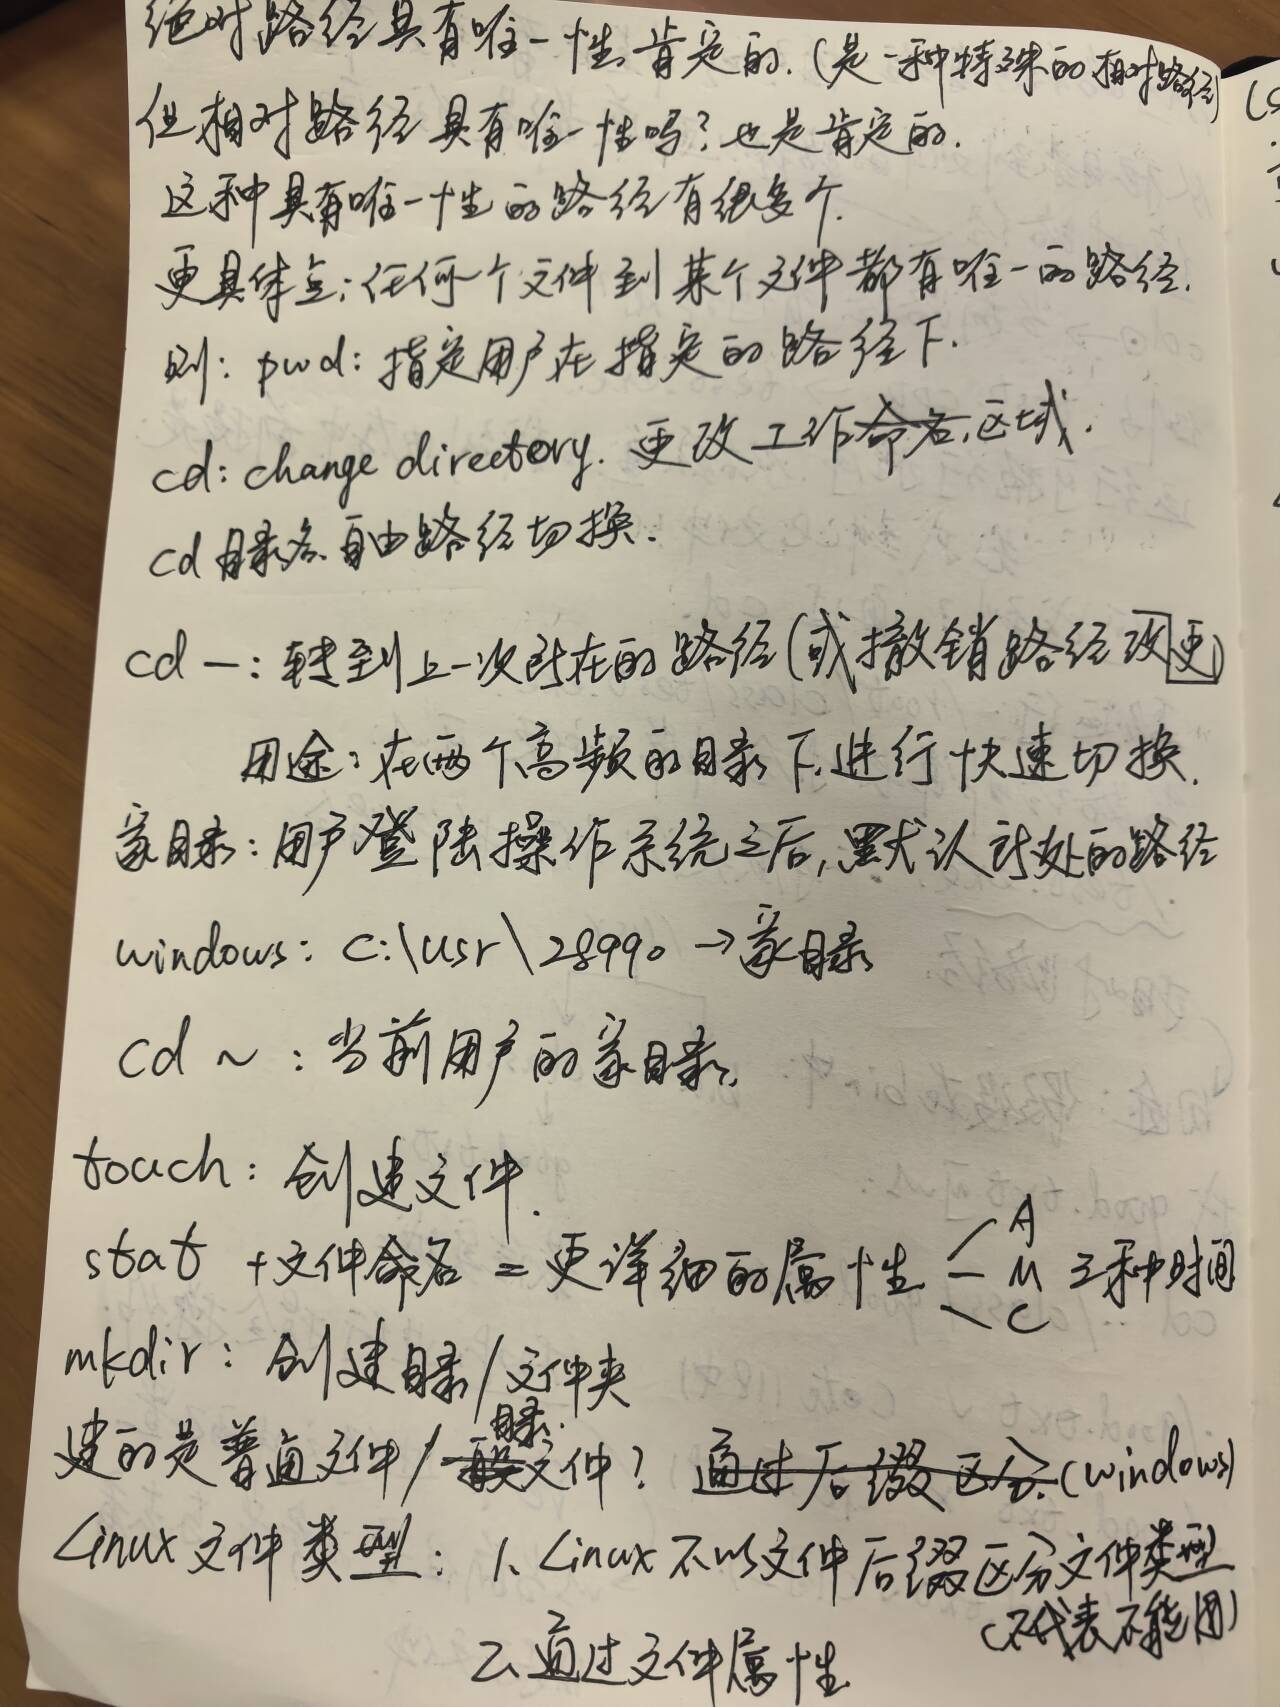 绝对路径具有唯一性,肯定的.(是一种特殊的相对路径)
但相对路径具有唯一性吗?也是肯定的.
这种具有唯一性的路径有很多个.
更具体点:任何一个文件到某个文件都有唯一的路径.
则: pwd: 指定用户在指定的路径下.
cd: change directory. 更改工作命名,区域.
cd 目录名,自由路径切换.
cd —: 转到上一次所在的路径(或撤销路径改更)
用途:在两个高频的目录下,进行快速切换.
家目录:用户登陆操作系统之后,默认所处的路径
windows: C:\usr\28990 → 家目录
cd ~ : 当前用户的家目录.
touch: 创建文件.
stat +文件命名 = 更详细的属性 A M C 三种时间
mkdir: 创建目录/文件夹
目录
建的是普通文件/文件? 通过后缀区分.(windows)
Linux文件类型: 1、Linux不以文件后缀区分文件类型
(不代表不能用)
2、通过文件属性